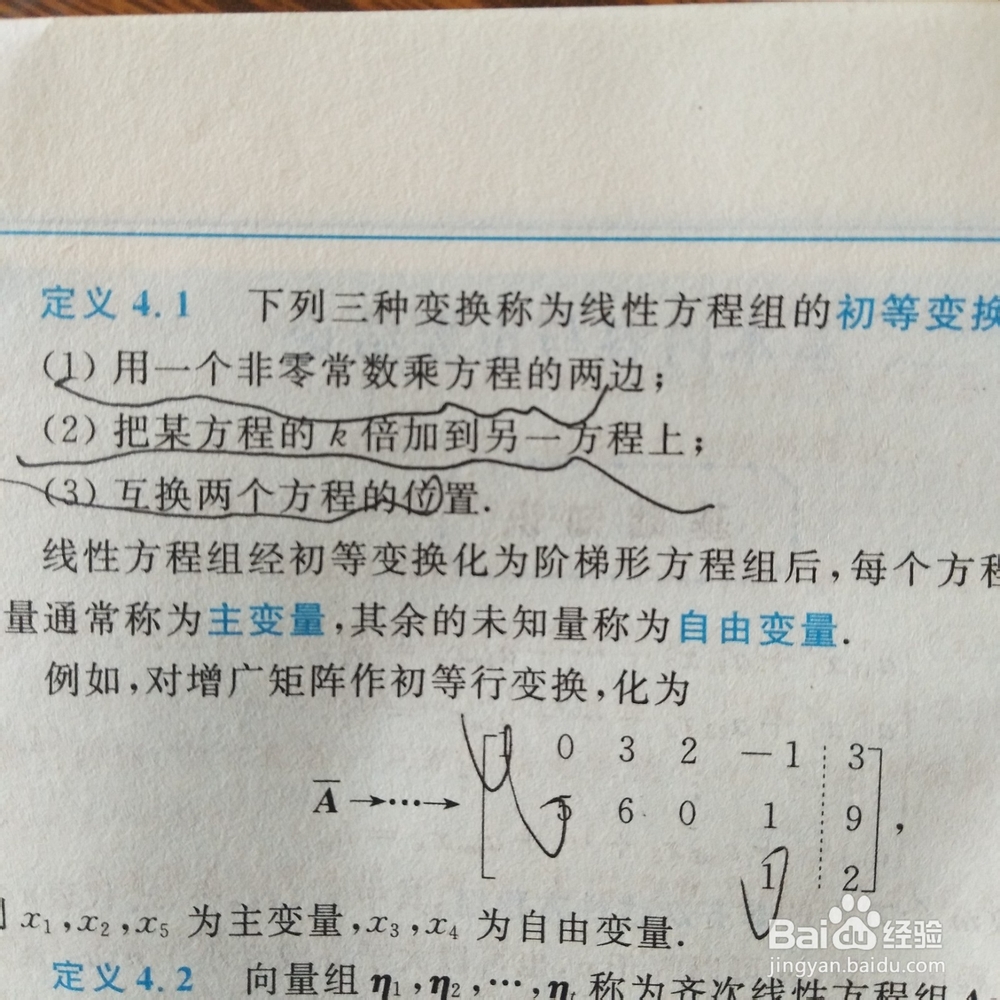 定义 4.1 下列三种变换称为线性方程组的初等变换
(1) 用一个非零常数乘方程的两边;
(2) 把某方程的 k 倍加到另一方程上;
(3) 互换两个方程的位置.
线性方程组经初等变换化为阶梯形方程组后,每个方程
量通常称为主变量,其余的未知量称为自由变量.
例如,对增广矩阵作初等行变换,化为
1 0 3 2 -1 3
A →…→ 5 6 0 1 9 ,
1 2
x1,x2,x5 为主变量,x3,x4 为自由变量.
定义 4.2 向量组 η1,η2,…,ηt 称为齐次线性方程组
Baidu 经验
jingyan.baidu.com